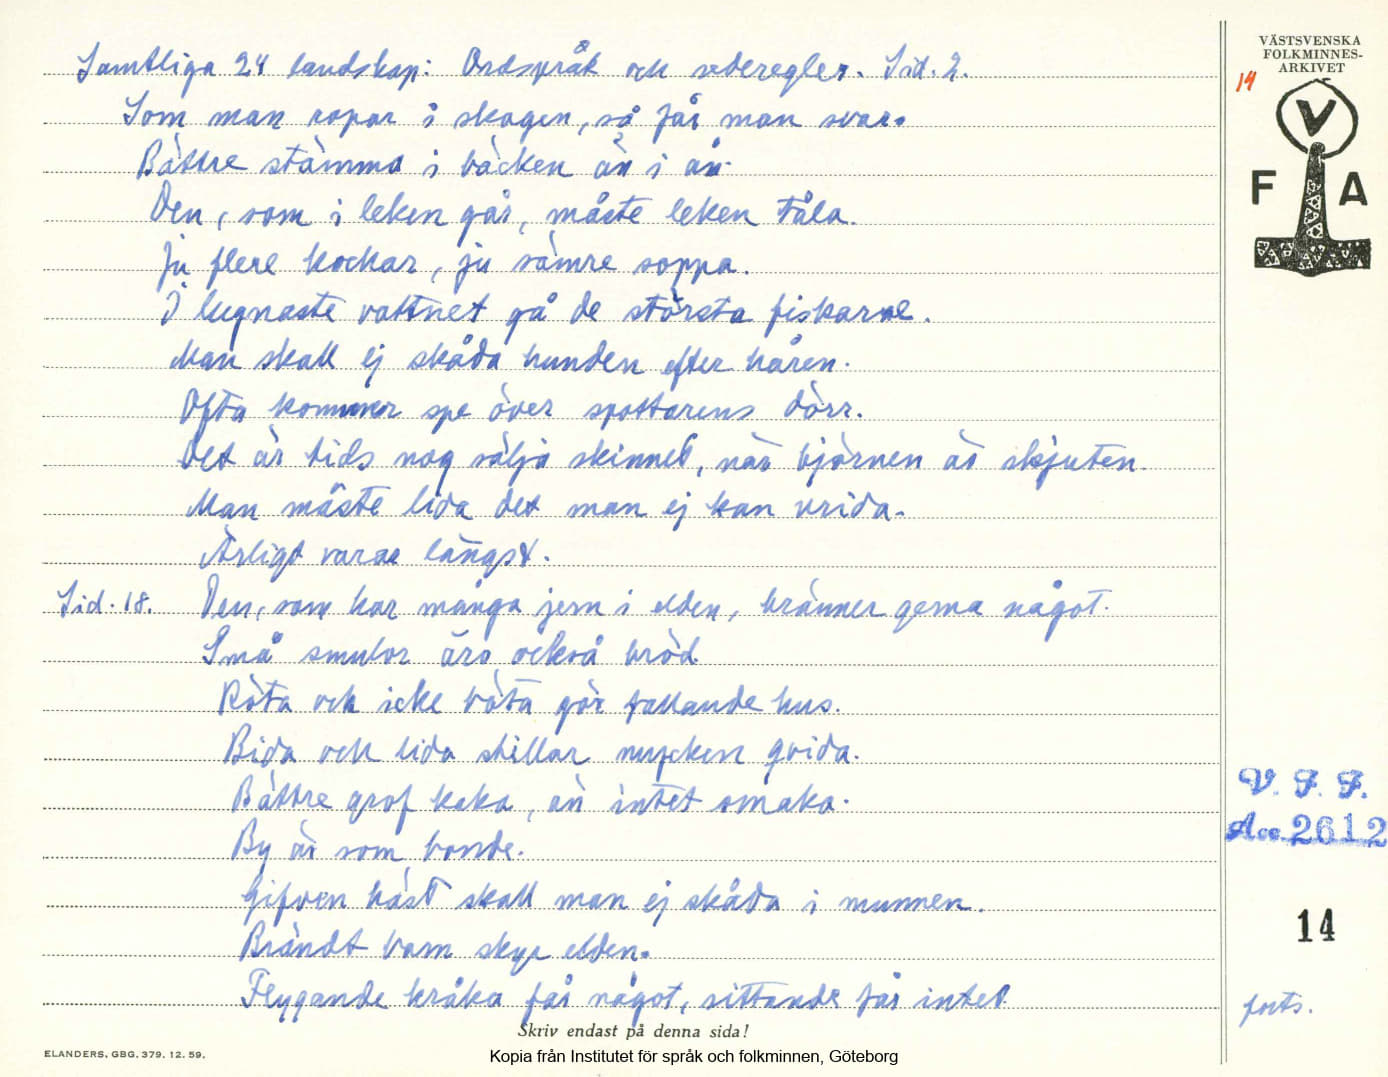 Samtliga 24 landskap: Ordspråk och sederegler. Sid. 2.
Som man ropar i skogen, så får man svar.
Bättre stämma i bäcken än i ån.
Den, som i leken går, måste leken tåla.
Ju flere kockar, ju sämre soppa.
I lugnaste vattnet gå de största fiskarne.
Man skall ej skåda hunden efter håren.
Ofta kommer spe över spottarens dörr.
Det är tids nog sälja skinnet, när björnen är skjuten.
Man måste lida det man ej kan vrida.
Ärligt varar längst.
Sid. 18. Den, som har många jern i elden, bränner gerna något.
Små smulor äro också bröd.
Röta och icke böta gör fallande hus.
Bida och lida skillar mycken qvida.
Bättre grof kaka, än intet smaka.
By är som bonde.
Gifven häst skall man ej skåda i munnen.
Brändt barn skyr elden.
Flygande kråka får något, sittande får intet.
Skriv endast på denna sida!
ELANDERS, GBG, 379. 12. 59.
Kopia från Institutet för språk och folkminnen, Göteborg
VÄSTSVENSKA
FOLKMINNES-
ARKIVET
14
V
F A
V. F. F.
Acc. 2612
14
forts.